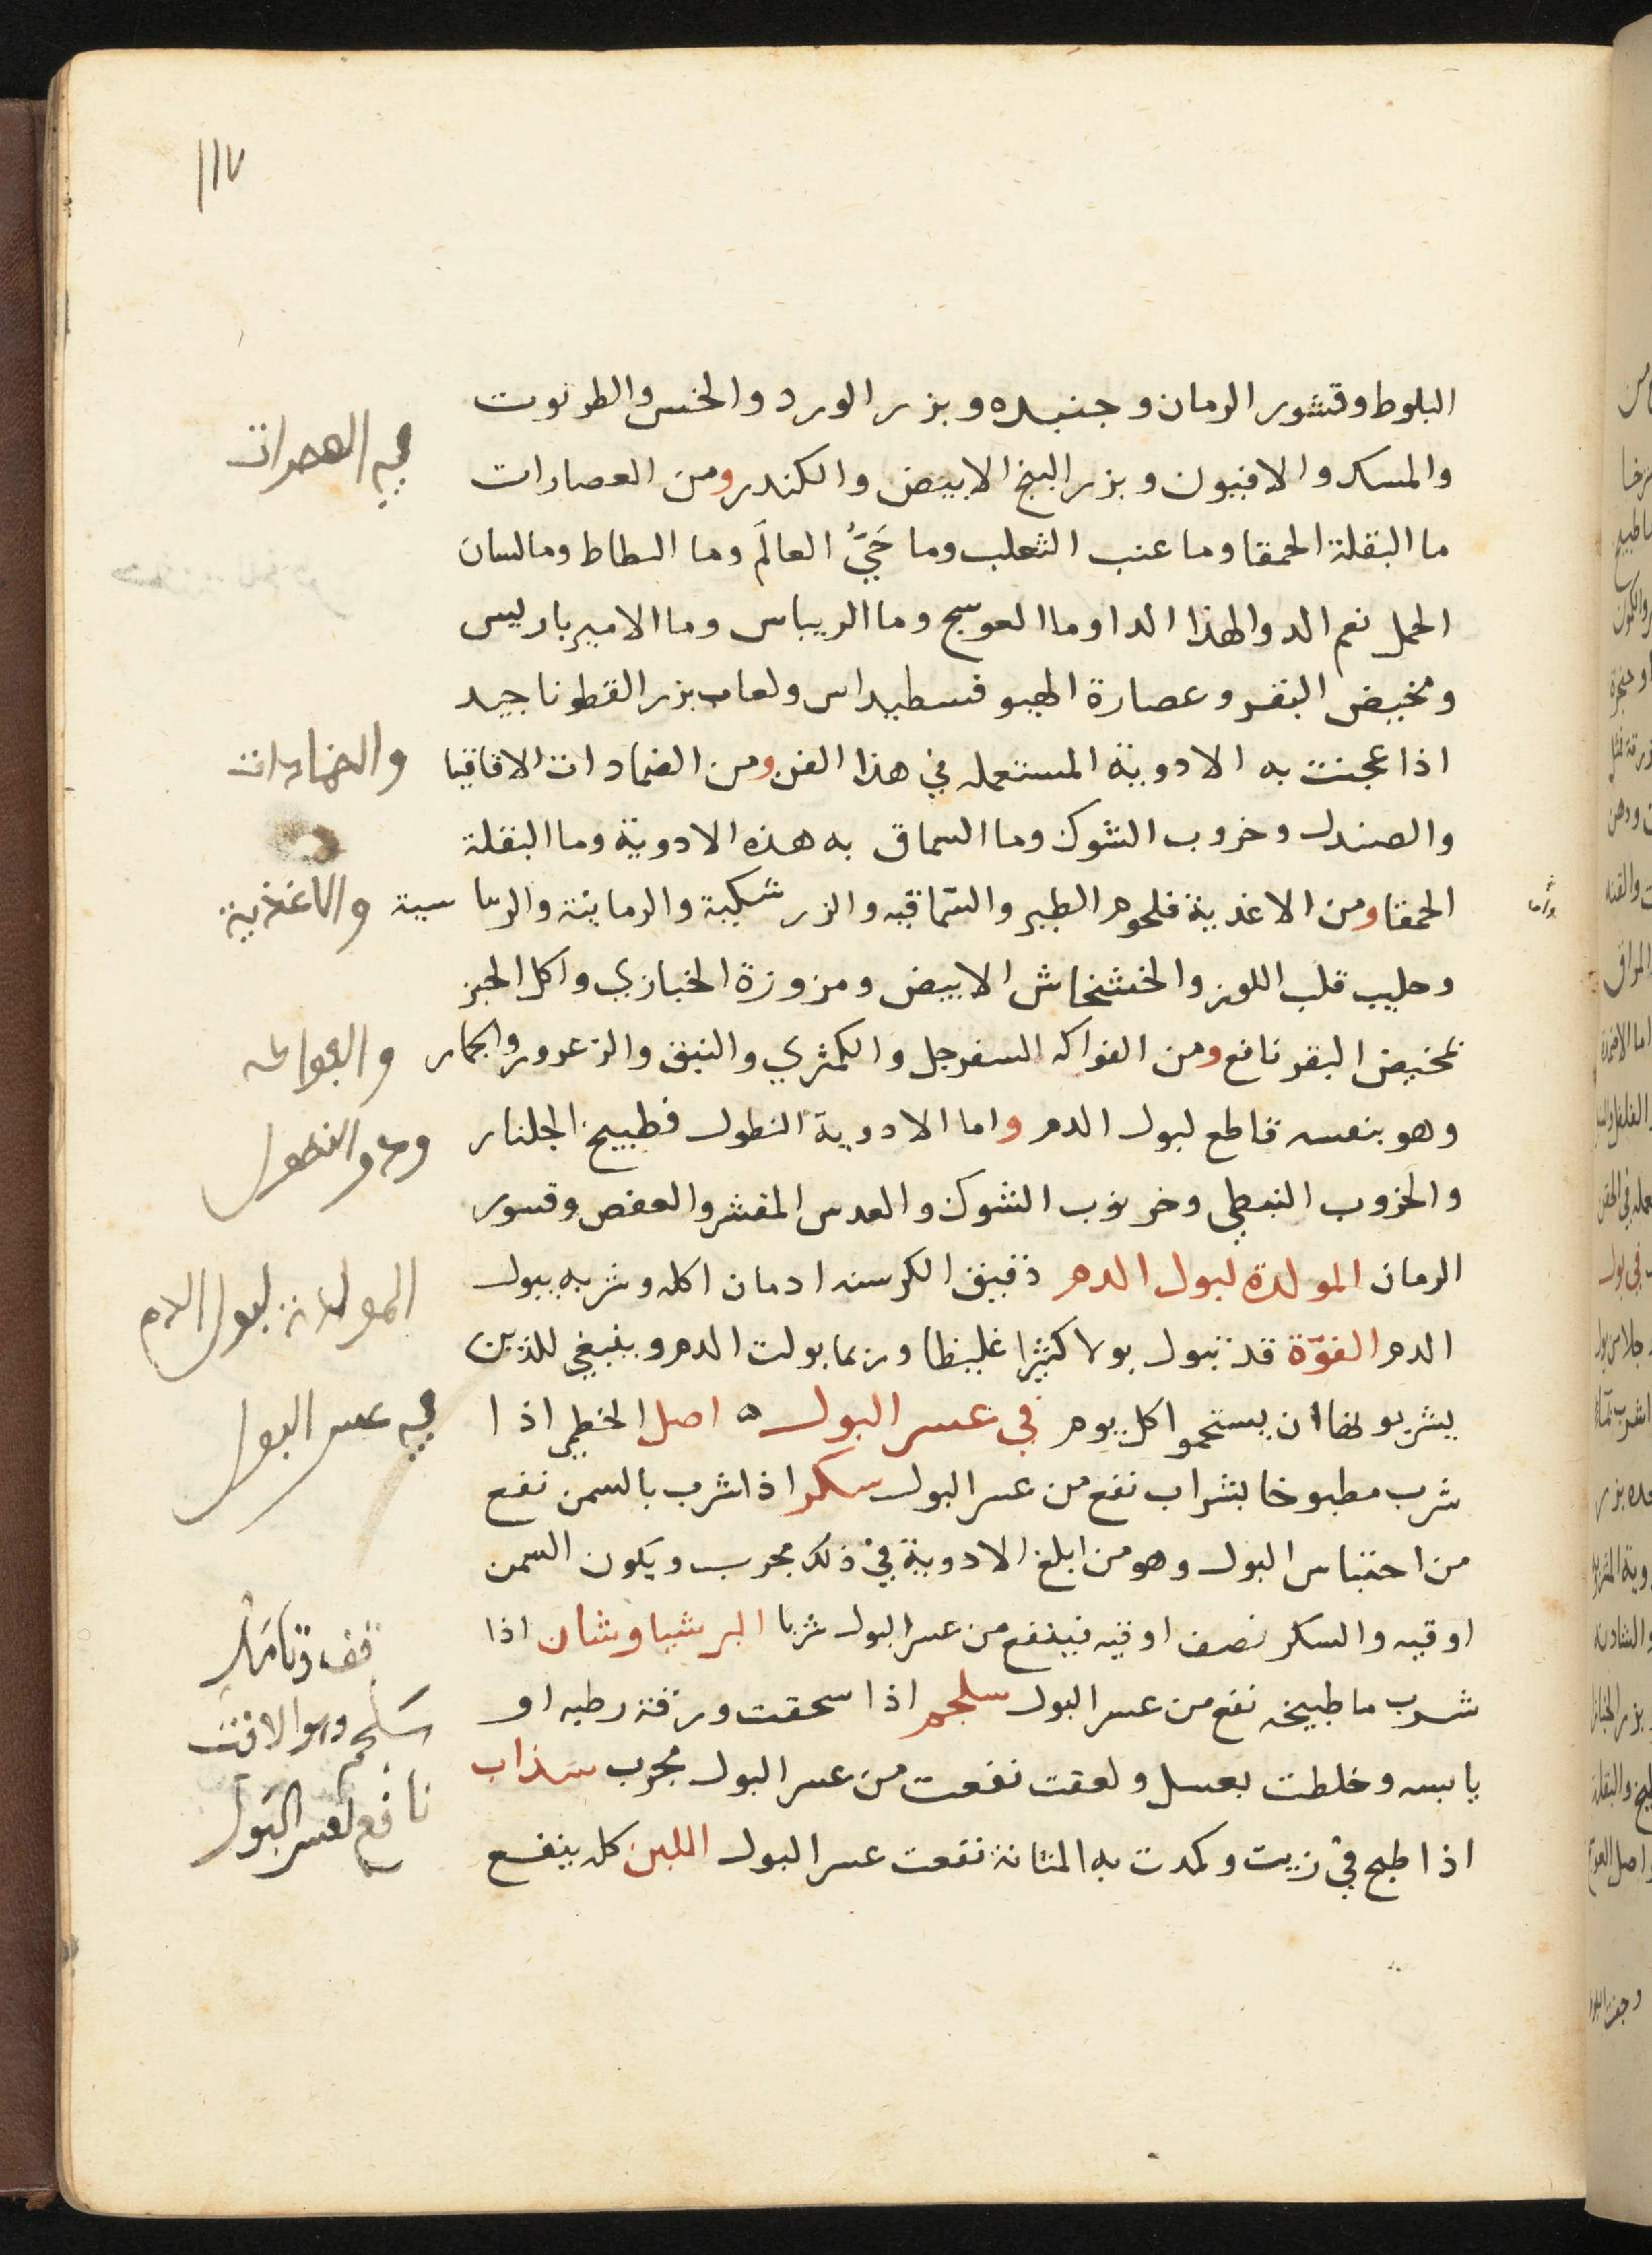 ١١٧
البلوط وقشور الرمان وجنبده وبزر الورد والخس والطرثوت
والمسك والافيون وبزر البنج الابيض والكندر ومن العصارات
ما البقلة الحمقا وما عنب الثعلب وما حَيَّ العالَم وما البطاط وما لسان
الحمل نعم الدوا لهذا الدا وما العوسج وما الريباس وما الامير باريس
ومخيض البقر وعصارة الهيوفسطيداس ولعاب بزر القطونا جيد
اذا عجنت به الادوية المستعمله في هذا الفن ومن الضمادات الاقاقيا
والصندل وخروب الشوك وما السماق به هذه الادوية وما البقلة
الحمقا ومن الاغذية فلحوم الطير والسّماقيه والزرشكية والرمانية والريباسية
وحليب قلب اللوز والخشخاش الابيض ومزوزة الخبازي واكل الخبز
بمخيض البقر نافع ومن الفواكه السفرجل والكمثري والنبق والزعرور والجمار
وهو بنفسه قاطع لبول الدم واما الادوية النطول فطبيخ الجلنار
والخروب النبطي وخرنوب الشوك والعدس المقشر والعفص وقسور
الرمان المولدة لبول الدم دقيق الكرسنه ادمان اكله وشربه يبول
الدم الفوّة قد تبول بولا كثيرا غليظا وربما بولت الدم وينبغي للذين
يشربونها ان يستحموا كل يوم في عسر البول ه اصل الخطمي اذا
شرب مطبوخا بشراب نفع من عسر البول سكر اذا شرب بالسمن نفع
من احتباس البول وهو من ابلغ الادوية في ذلك مجرب ويكون السمن
اوقيه والسكر نصف اوقيه فينفع من عسر البول شربا البرشياوشان اذا
شرب ما طبيخه نفع من عسر البول سلجم اذا سحقت ورقة رطبه او
يابسه وخلطت بعسل ولعقت نفعت من عسر البول مجرب سذاب
اذا طبخ في زيت وكمدت به المثانة نفعت عسر البول اللبن كله ينفع
في العصرات
والضمادات
والاغذية
والفواكه
ودو النطول
المولدة لبول الدم
في عسر البول
قف وتامل
سلجم وهو الافت
نافع لعسر البول